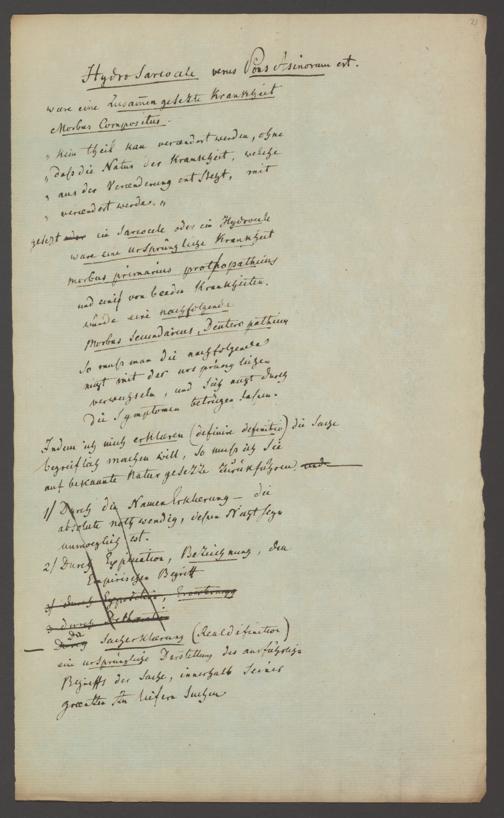 Hydro Sarcocele verus Pons Asinorum est.
ware eine Zusammengesetzte Krankheit
Morbus Compositus.
„ kein theil kan verændert werden, ohne
„ daß die Natur der Krankheit, welche
„ aus der Verænderung entsteht, mit
„ verændert werde. „
gesezt ein Sarcocele oder ein Hydrocele
ware eine ursprüngliche Krankheit
morbus primarius protopathicus
und eine von beeden Krankheiten
würde eine nachfolgende
Morbus Secundarius, Deutero pathicus
So muß man die nachfolgende
nicht mit der ursprünglichen
verwechseln, und sich nicht durch
die Symptomen betrügen laßen.
Indem ich mich erklären (definire definitio) die Sache
begreiflich machen will, so muß ich Sie
auf bekannte Naturgesetze zurükführen und
1/ Durch die Namen Erklærung – die
absolute nothwendig, deßen Nicht seyn
unmoeglich ist.
2/ Durch Expliation, Bezeichnung, den
Empirischen Begriff
3/ durch Exposition,
3 durch
Durch Sacherklærung (Realdefinition)
ein ursprüngliche Darstellung des ausführlichen
Begriffs der Sache, innerhalb Seiner
græntzen zu liefern suchen
21